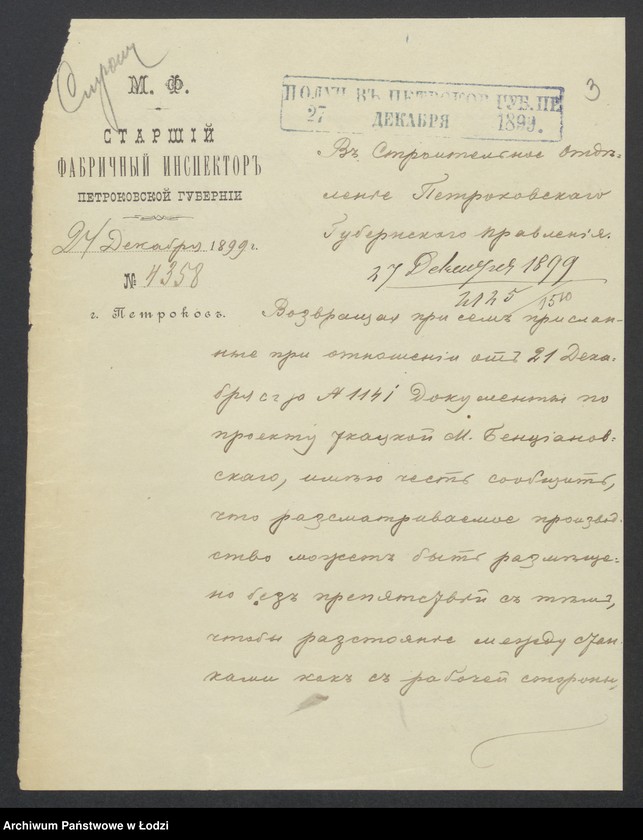 Строит
М. Ф.
СТАРШІЙ
ФАБРИЧНЫЙ ИНСПЕКТОРЪ
ПЕТРОКОВСКОЙ ГУБЕРНІИ
24 Декабря 1899 г.
№ 4358
г. Петроковъ.
ПОЛУЧ. ВЪ ПЕТРОКОВ. ГУБ. ПР
27 ДЕКАБРЯ 1899.
3
Въ Строительное Отдѣ-
леніе Петроковскаго
Губернскаго Правленія.
27 Декабря 1899
2125/1510
Возвращая при семъ прислан-
ные при отношеніи отъ 21 Дека-
бря с. г. за № 1141 Документы по
проекту ткацкой М. Бенціанов-
скаго, имѣю честь сообщить,
что разсматриваемое производ-
ство можетъ быть размѣще-
но безъ препятствій съ тѣмъ,
чтобы разстояніе между стан-
ками какъ съ рабочей стороны,
Archiwum Państwowe w Łodzi